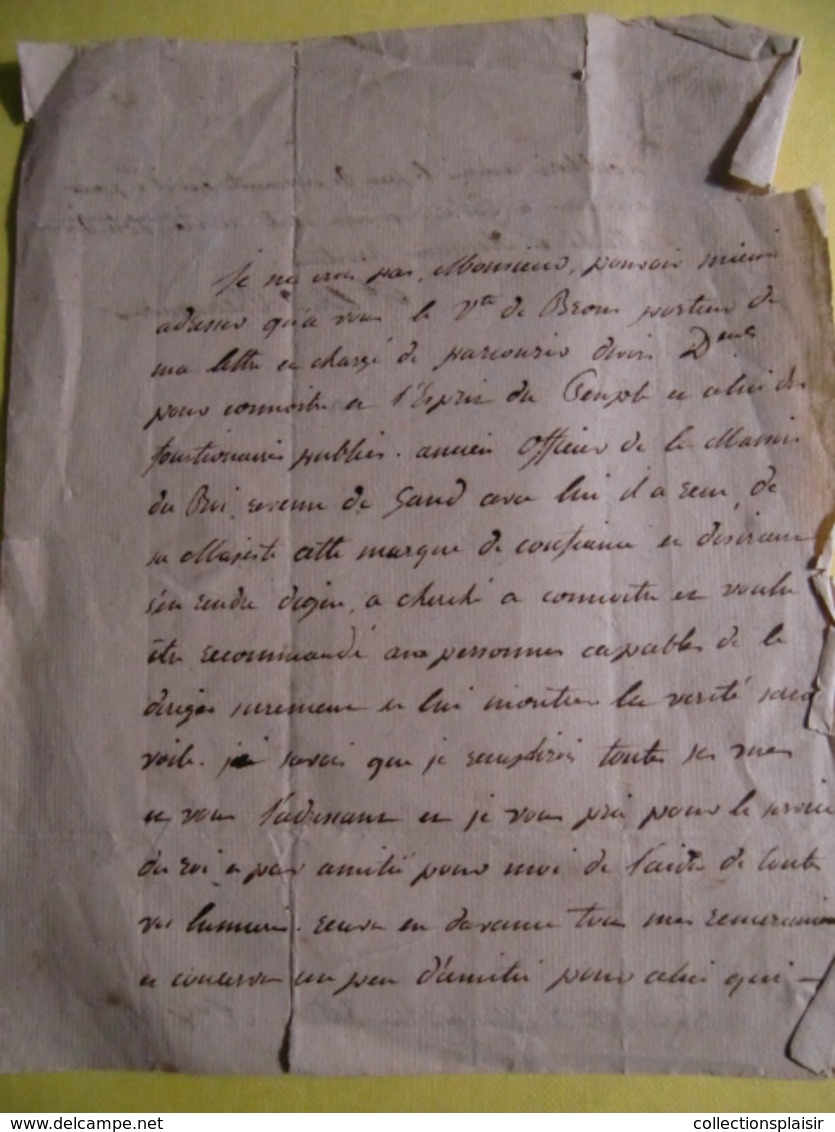 Je ne crois pas, Monsieur, pouvoir mieux
adresser qu'à vous le Vte de Brons porteur de
ma lettre et chargé de parcourir divers Dments
pour connoitre et l'Esprit du Peuple et celui des
fonctionaires publics. ancien Officier de la Maison
du Roi, revenu de Gand avec lui il a reçu de
sa Majesté cette marque de confiance et desirant
s'en rendre digne, a cherché a connoitre et voulu
être recommandé aux personnes capables de le
diriger surement et lui montrer la verité sans
voile. j'ai savois que je remplirois toutes ses vues
en vous l'adressant et je vous prie pour le service
du roi et par amitié pour moi de l'aider de toutes
vos lumieres. recevez en d'avance tous mes remerciemens
et conservez un peu d'amitié pour celui qui
collectionsplaisir